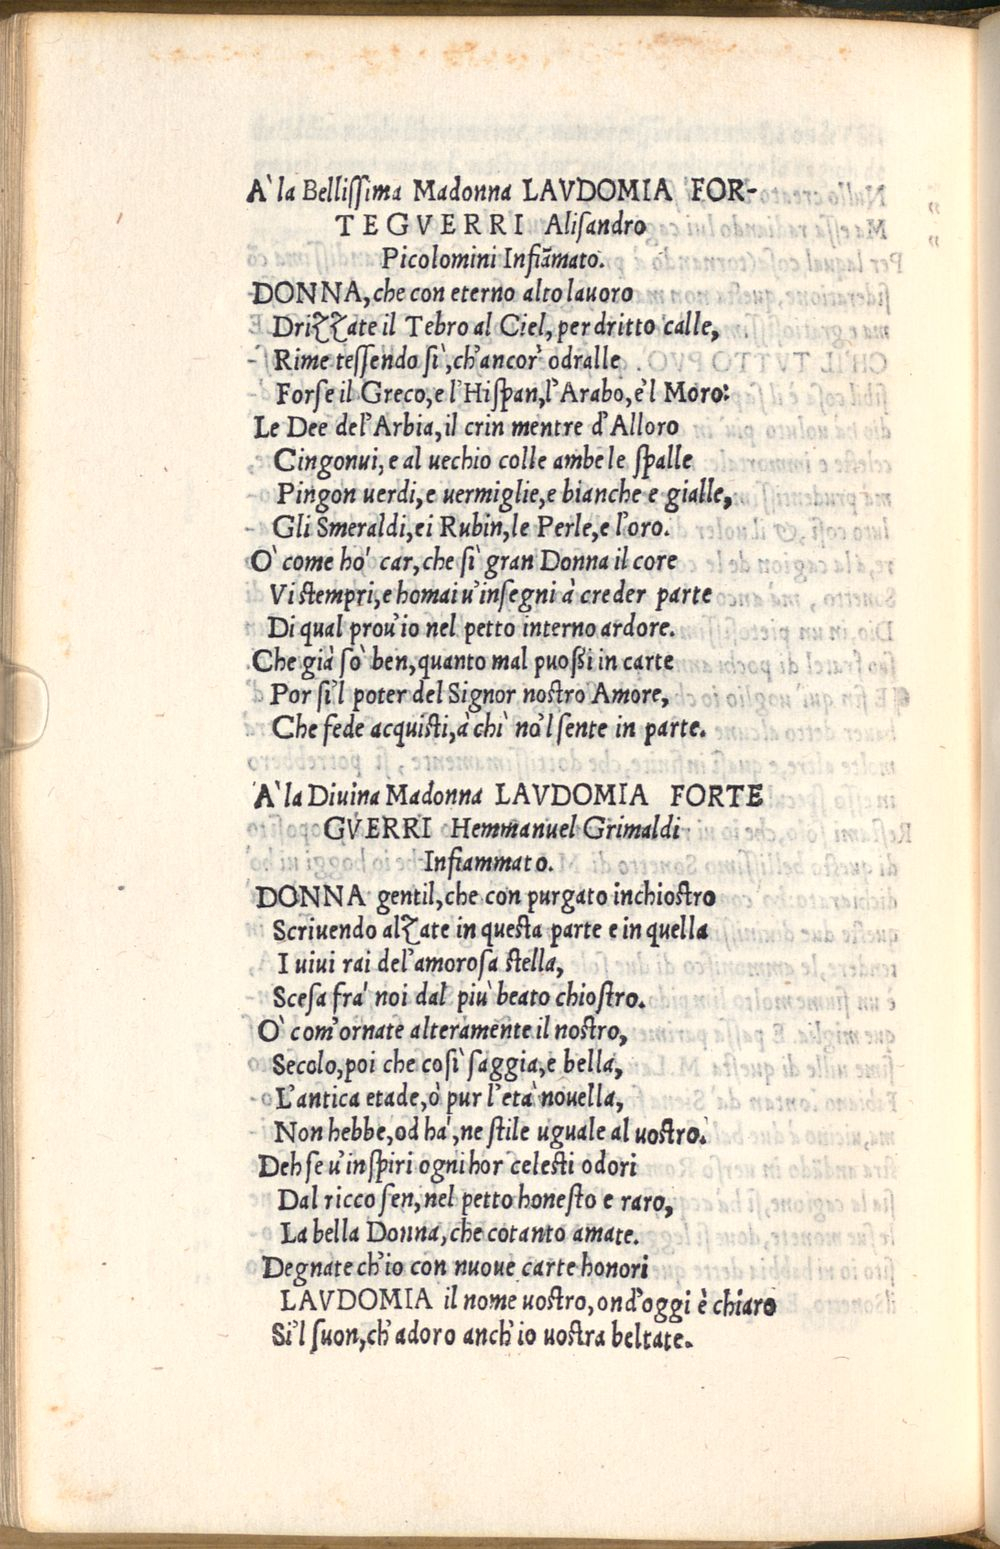 A' la Bellissima Madonna LAVDOMIA FOR-
TEGVERRI Alisandro
Picolomini Infiãmato.
DONNA, che con eterno alto lavoro
Drizzate il Tebro al Ciel, per dritto calle,
Rime tessendo sì, ch'ancor' odralle
Forse il Greco, e l'Hispan, l'Arabo, e'l Moro:
Le Dee del'Arbia, il crin mentre d'Alloro
Cingonui, e al uechio colle ambe le spalle
Pingon uerdi, e uermiglie, e bianche e gialle,
Gli Smeraldi, ei Rubin, le Perle, e l'oro.
O' come ho' car, che sì gran Donna il core
Vi stempri, e homai u'insegni à creder parte
Di qual prou'io nel petto interno ardore.
Che già sò ben, quanto mal puossi in carte
Por sì'l poter del Signor nostro Amore,
Che fede acquisti, à chì nò'l sente in parte.
A' la Diuina Madonna LAVDOMIA FORTE
GVERRI Hemmanuel Grimaldi
Infiammato.
DONNA gentil, che con purgato inchiostro
Scriuendo alzate in questa parte e in quella
I uiui rai del'amorosa stella,
Scesa frà noi dal più beato chiostro.
O' com'ornate alteramente il nostro,
Secolo, poi che così saggia, e bella,
L'antica etade, ò pur l'età nouella,
Non hebbe, od hà, ne stile uguale al uostro.
Deh se u'inspiri ogni hor celesti odori
Dal ricco sen, nel petto honesto e raro,
La bella Donna, che cotanto amate.
Degnate ch'io con nuoue carte honori
LAVDOMIA il nome uostro, ond'oggi è chiaro
Sì'l suon, ch'adoro anch'io uostra beltate.